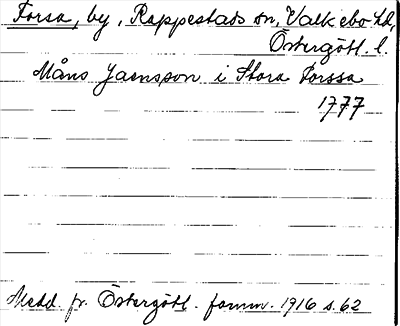 Forsa, by, Rappestads sn, Valkebo hd,
Östergötl. l.
Måns Jaensson i Stora Forssa
1777
Medd. fr. Östergötl. fornm. 1916 s. 62